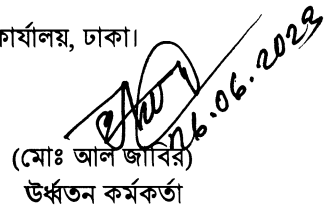 কার্যালয়, ঢাকা।
26.06.2023
(মোঃ আল জাবির)
উর্ধ্বতন কর্মকর্তা